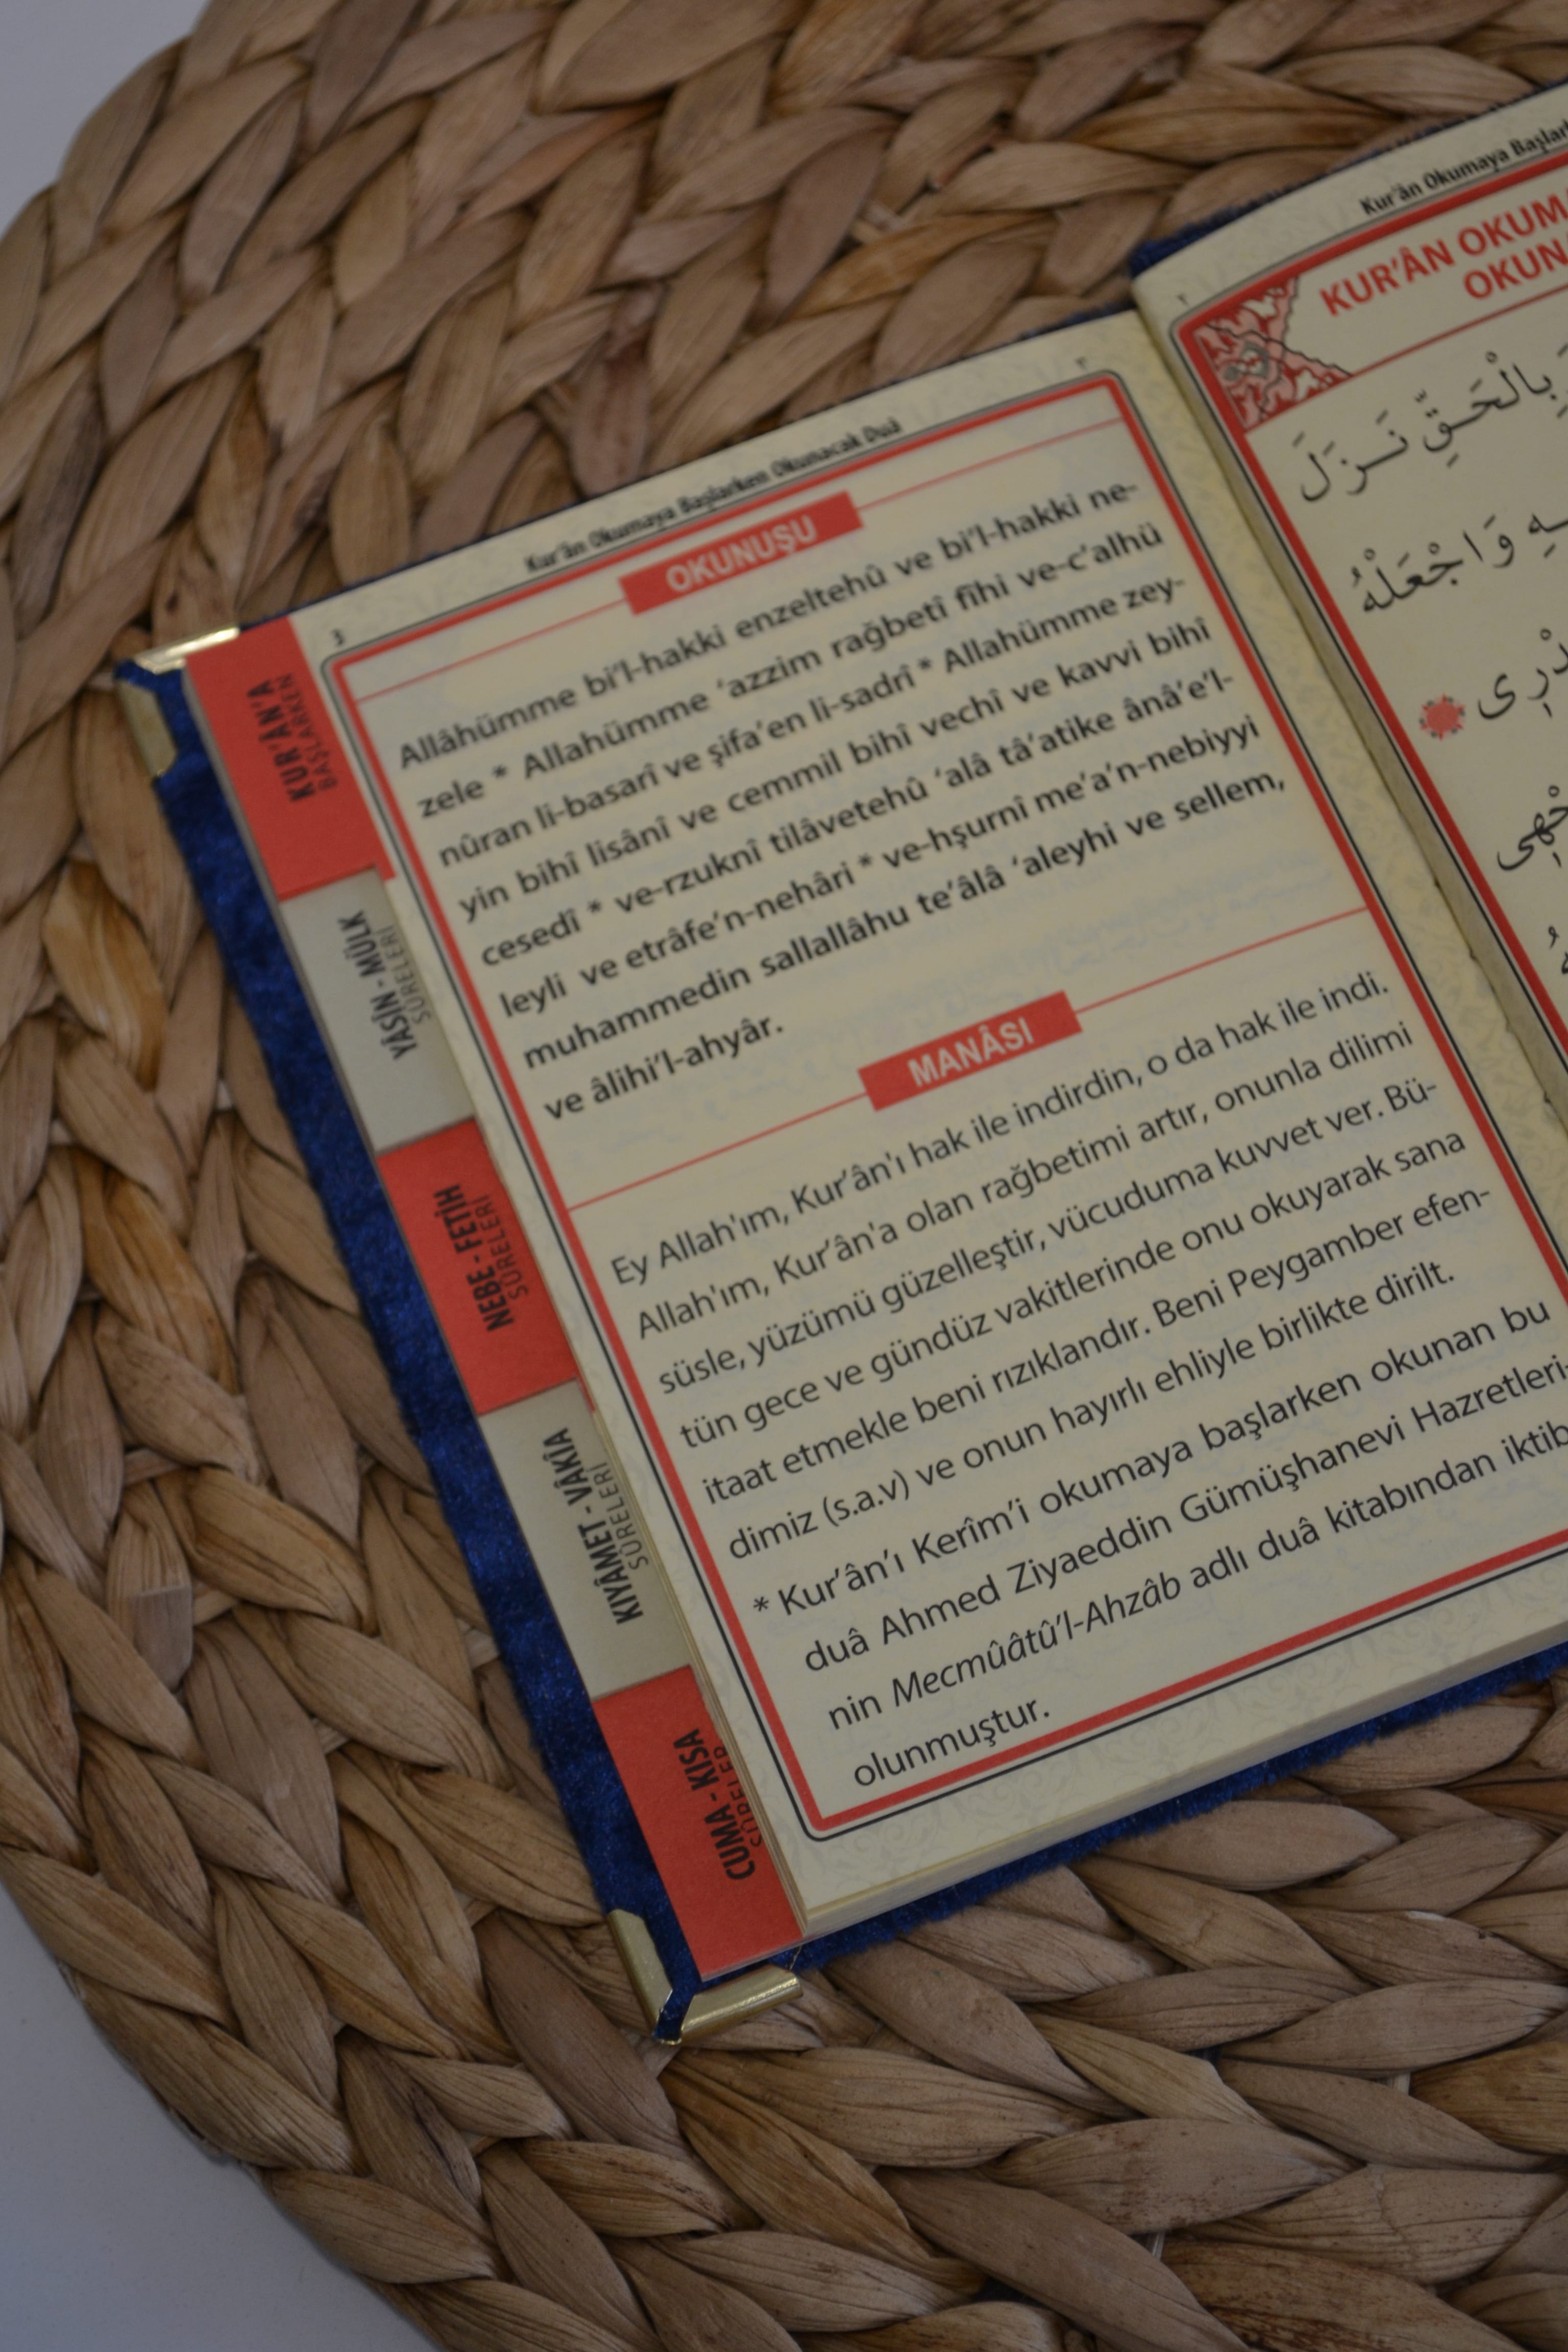 Kur'ân Okumaya Başlarken Okunacak Duâ
3
٣
OKUNUŞU
Allâhümme bi'l-hakki enzeltehû ve bi'l-hakki ne-
zele * Allahümme 'azzim rağbetî fîhi ve-c'alhü
nûran li-basarî ve şifa'en li-sadrî * Allahümme zey-
yin bihî lisânî ve cemmil bihî vechî ve kavvi bihî
cesedî * ve-rzuknî tilâvetehû 'alâ tâ'atike ânâ'e'l-
leyli ve etrâfe'n-nehâri * ve-hşurnî me'a'n-nebiyyi
muhammedin sallallâhu te'âlâ 'aleyhi ve sellem,
ve âlihi'l-ahyâr.
MANÂSI
Ey Allah'ım, Kur'ân'ı hak ile indirdin, o da hak ile indi.
Allah'ım, Kur'ân'a olan rağbetimi artır, onunla dilimi
süsle, yüzümü güzelleştir, vücuduma kuvvet ver. Bü-
tün gece ve gündüz vakitlerinde onu okuyarak sana
itaat etmekle beni rızıklandır. Beni Peygamber efen-
dimiz (s.a.v) ve onun hayırlı ehliyle birlikte dirilt.
* Kur'ân'ı Kerîm'i okumaya başlarken okunan bu
duâ Ahmed Ziyaeddin Gümüşhanevi Hazretleri-
nin Mecmûâtû'l-Ahzâb adlı duâ kitabından iktib
olunmuştur.
KUR'ÂN'A
BAŞLARKEN
YÂSÎN - MÜLK
SÛRELERİ
NEBE - FETİH
SÛRELERİ
KIYÂMET - VÂKİA
SÛRELERİ
CUMA - KISA
SÛRELER
Kur'ân Okumaya Başlark
٢
KUR'ÂN OKUM
OKUN
بِالْحَقِّ نَزَلَ
وَاجْعَلْهُ